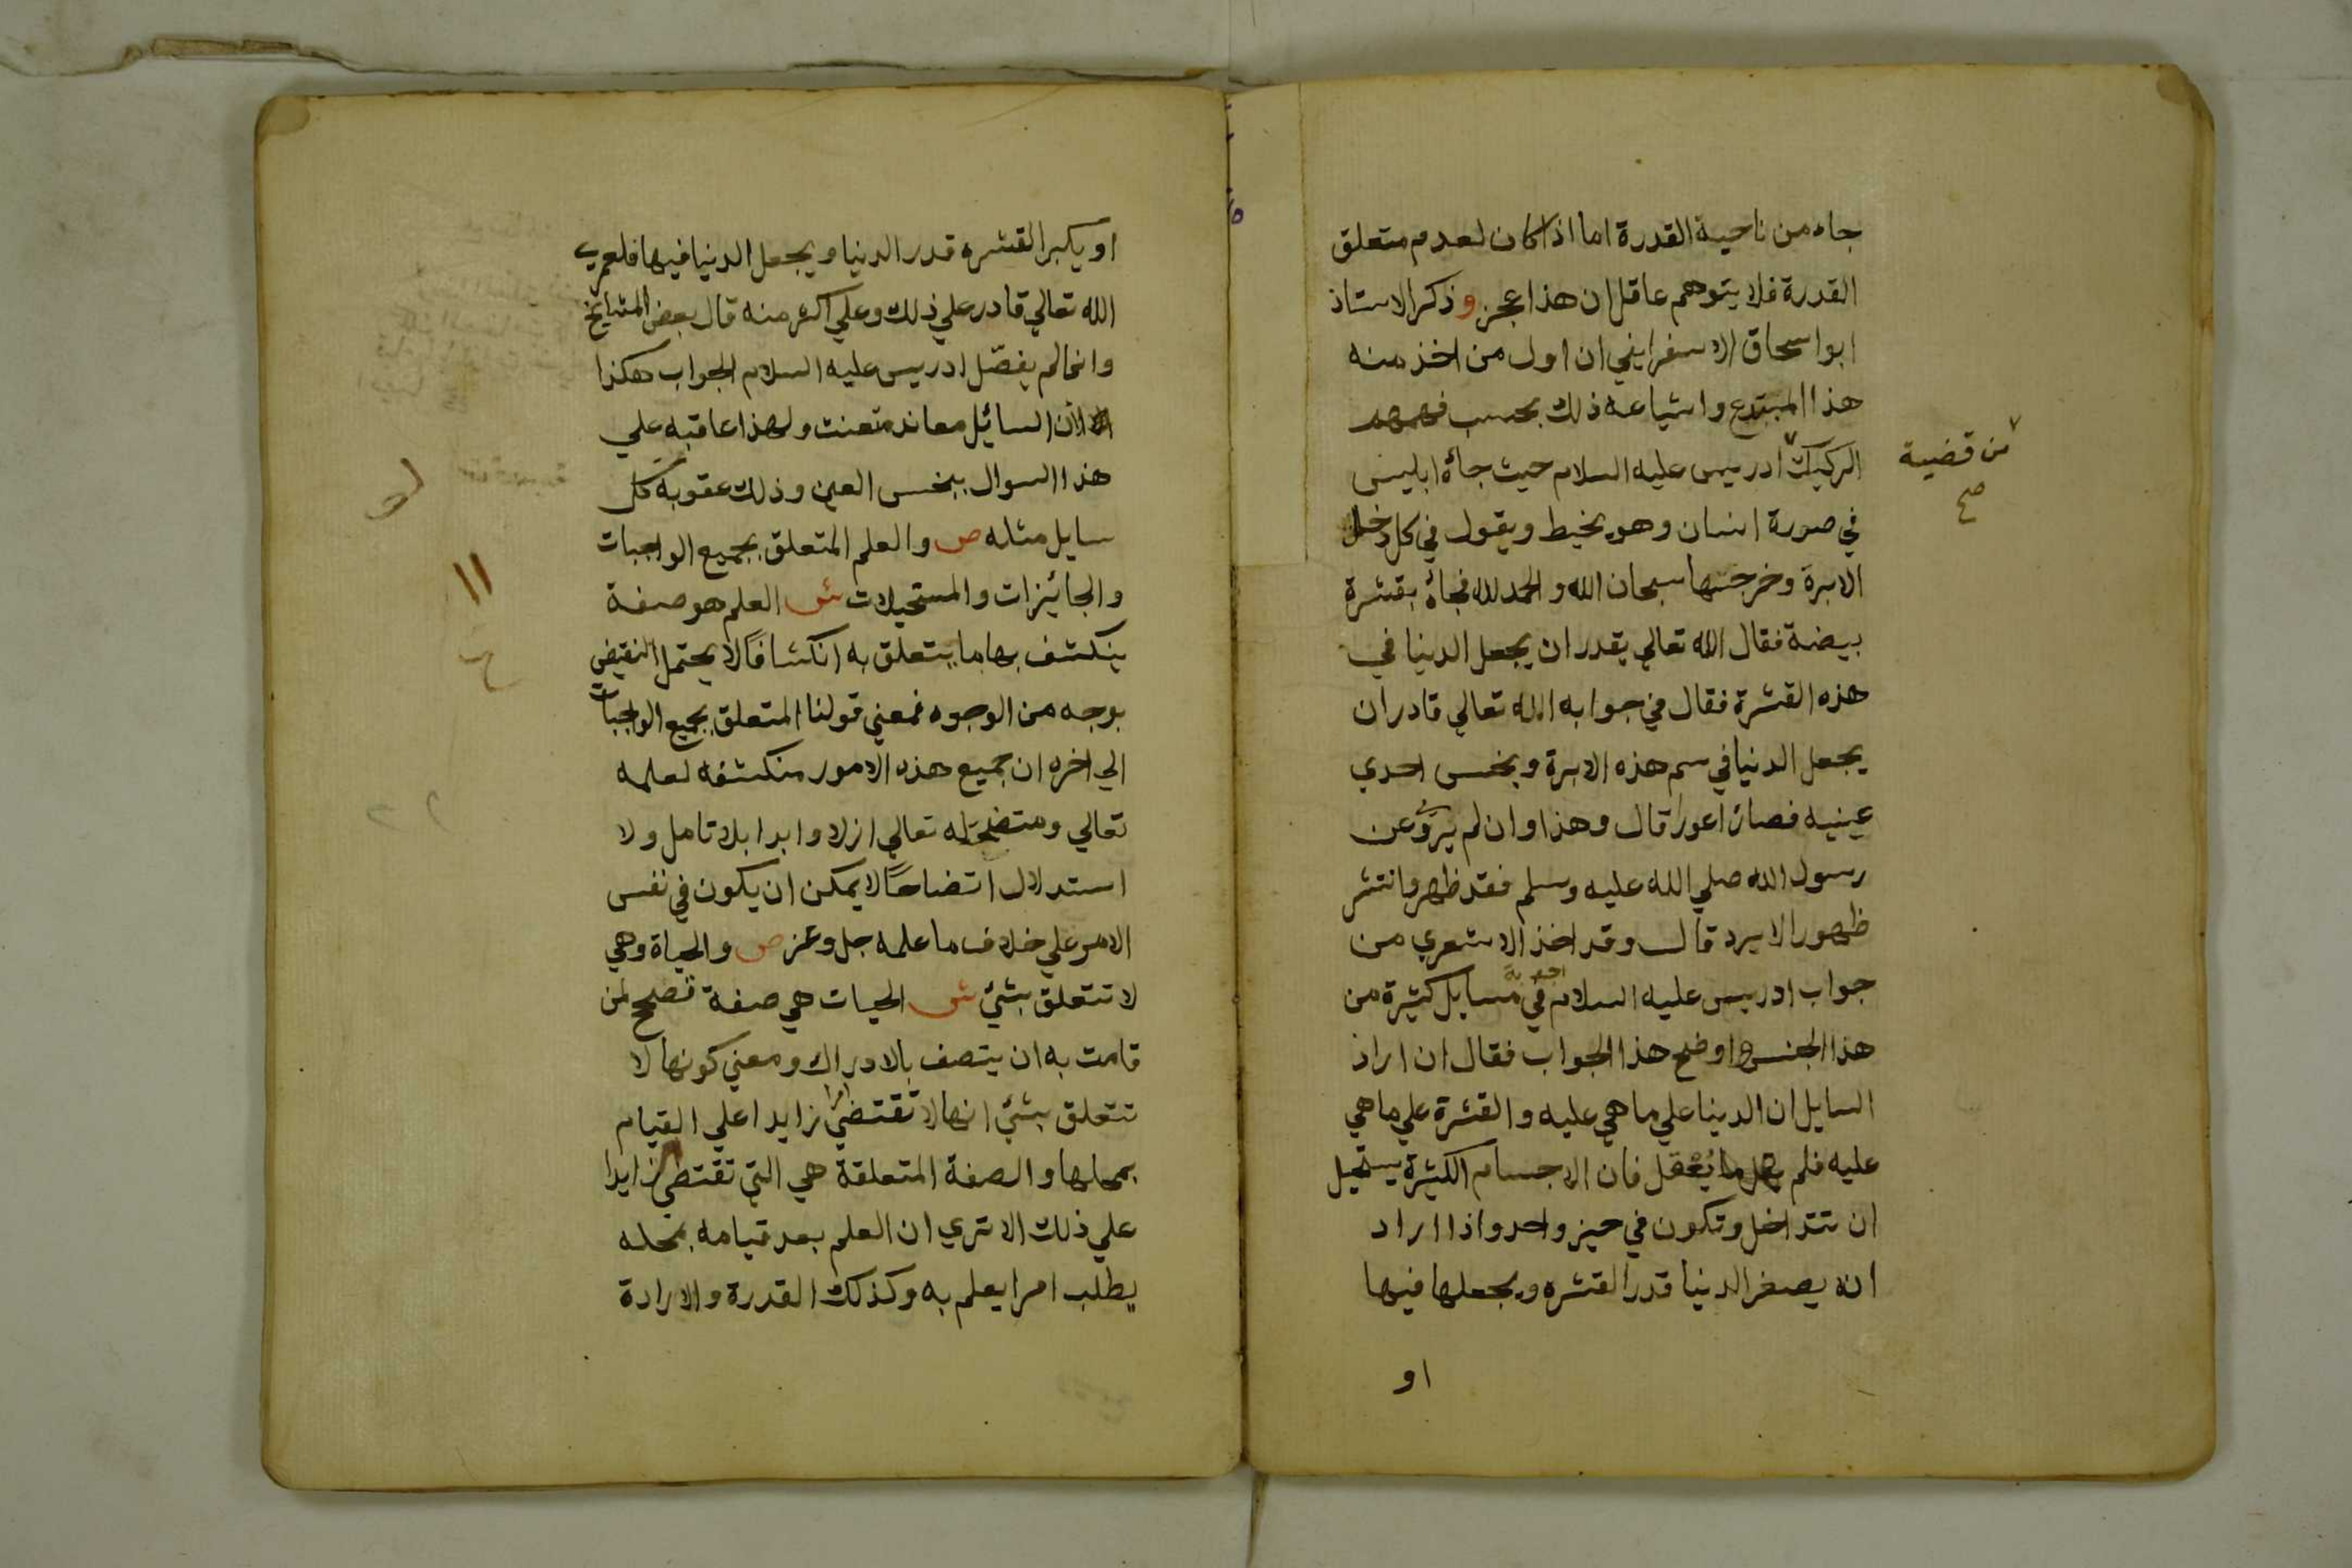 جاء من ناحية القدرة اما اذا كان لعدم متعلق
القدرة فلا يتوهم عاقل ان هذا عجز وذكر الاستاذ
ابو اسحاق الاسفرايني ان اول من اخذ منه
هذا المبتدع واشياعه ذلك بحسب فهمهم
الركيك ادريس عليه السلام حيث جاءه ابليس
من قضية
صح
في صورة انسان وهو يخيط ويقول في كل دخلة
الابرة وخرجتها سبحان الله والحمد لله فجاءه بقشرة
بيضة فقال الله تعالي يقدر ان يجعل الدنيا في
هذه القشرة فقال في جوابه الله تعالي قادر ان
يجعل الدنيا في سم هذه الابرة ونخس احدي
عينيه فصار اعور قال وهذا وان لم يرو عن
رسول الله صلي الله عليه وسلم فقد ظهر وانتشر
ظهورا لا يرد قال وقد اخذ الاشعري من
جواب ادريس عليه السلام في مسايل كثيرة من
اجوبة
هذا الجنس واوضح هذا الجواب فقال ان اراد
السايل ان الدنيا علي ما هي عليه والقشرة علي ما هي
عليه فلم يقل ما يعقل فان الاجسام الكثيرة يستحيل
ان تتداخل وتكون في حيز واحد واذا اراد
انه يصغر الدنيا قدر القشره ويجعلها فيها
او
او يكبر القشره قدر الدنيا ويجعل الدنيا فيها فلعمري
الله تعالي قادر علي ذلك وعلي اكثر منه قال بعض المشايخ
وانما لم يفصّل ادريس عليه السلام الجواب هكذا
لان السائيل معاند متعنت ولهذا عاقبه علي
هذا السوال بنخس العين وذلك عقوبة كل
سايل مثله ص والعلم المتعلق بجميع الواجبات
والجائيزات والمستحيلات ش العلم هو صفة
ينكشف بها ما يتعلق به انكشافًا لا يحتمل النقيض
بوجه من الوجوه فمعني قولنا المتعلق بجميع الواجبات
الي اخره ان جميع هذه الامور منكشفه لعلمه
تعالي ومتضحة له تعالي ازلا وابدا بلا تامل ولا
استدلال اتضاحًا لا يمكن ان يكون في نفس
الامر علي خلاف ما علمه جل وعز ص والحياة وهي
لا تتعلق بشيئ ش الحيات هي صفة تصلح لمن
قامت به ان يتصف بالادراك ومعني كونها لا
تتعلق بشيئ انها لا تقتضي امرا زايدا علي القيام
بمحلها والصفة المتعلقة هي التي تقتضي زايدا
علي ذلك الا تري ان العلم بعد قيامه بمحله
يطلب امرا يعلم به وكذلك القدرة والارادة
١١